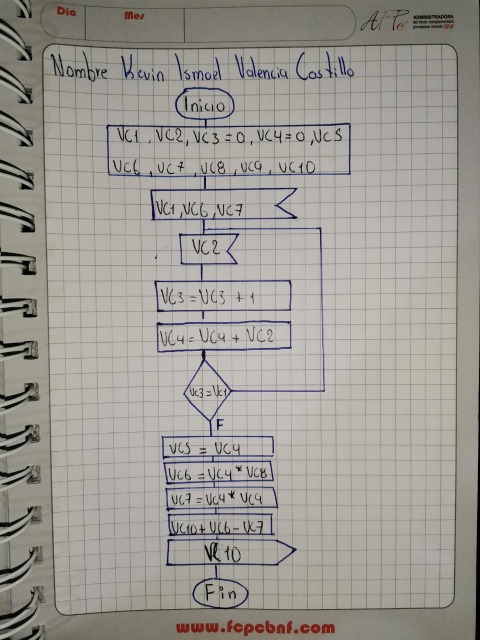 Día
Mes
AFP
ADMINISTRADORA
Nombre Kevin Ismael Valencia Castillo
Inicio
VC1, VC2, VC3=0, VC4=0, VC5
VC6, VC7, VC8, VC9, VC10
VC1, VC6, VC7
VC2
VC3=VC3+1
VC4=VC4+VC2
VC3=VC1
F
VC5=VC4
VC6=VC4*VC8
VC7=VC4*VC9
VC10+VC6-VC7
VC10
Fin
www.fcpcbnf.com